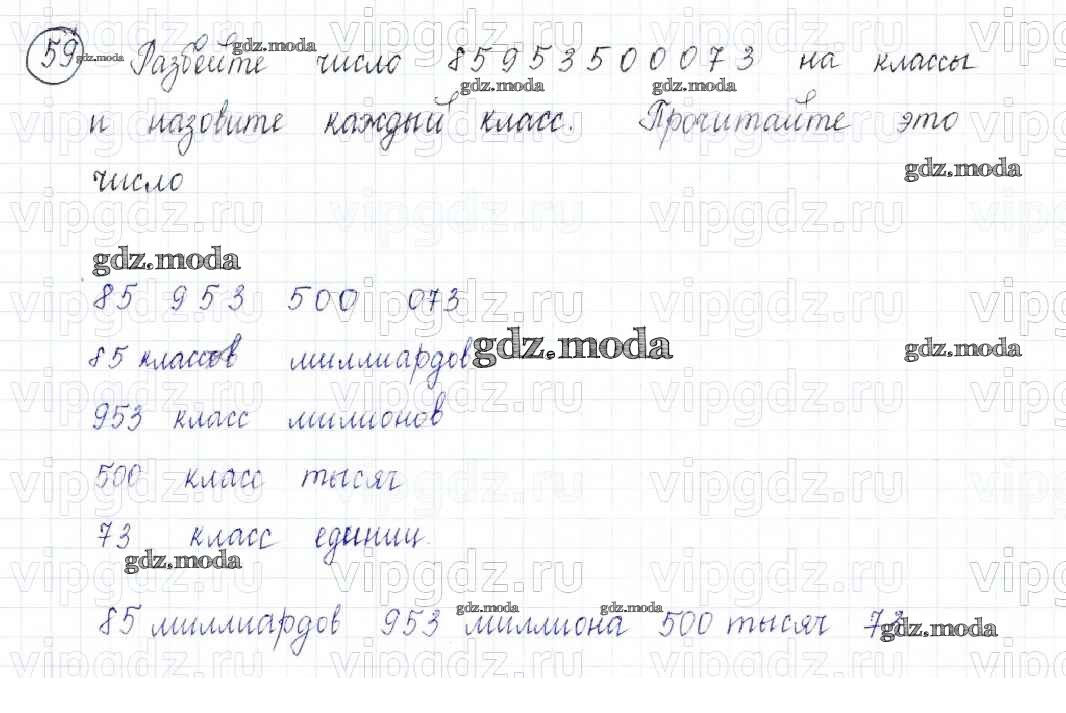 59 Разбейте число 85953500073 на классы
и назовите каждый класс. Прочитайте это
число
85 953 500 073
85 классов миллиардов
953 класс милионов
500 класс тысяч
73 класс единиц.
85 миллиардов 953 миллиона 500 тысяч 73
gdz.moda
vipgdz.ru